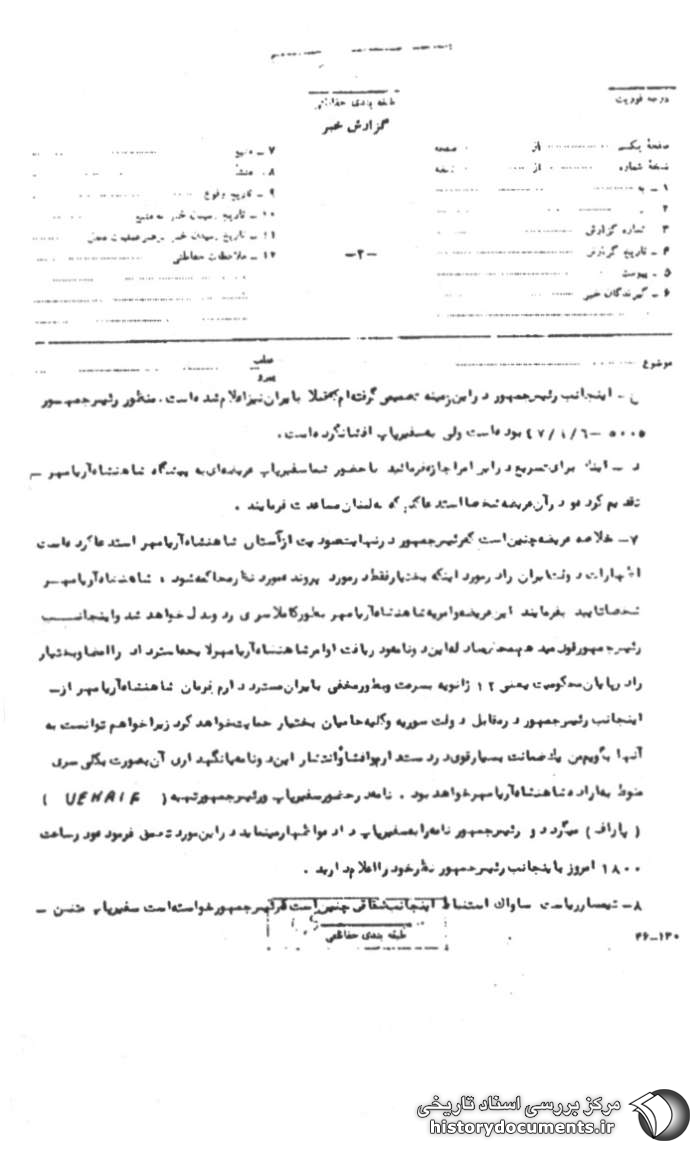 طبقه بندی حفاظتی
درجه فوریت
گزارش خبر
صفحه یکم از صفحه
نسخه شماره از نسخه
۱ ـ به
۲ ـ
۳ ـ شماره گزارش
۴ ـ تاریخ گزارش
۵ ـ پیوست
۶ ـ گیرندگان خبر
۷ ـ منبع
۸ ـ منشأ
۹ ـ تاریخ وقوع
۱۰ ـ تاریخ رسیدن خبر به منبع
۱۱ ـ تاریخ رسیدن خبر به رهبر عملیات محل
۱۲ ـ ملاحظات حفاظتی
-۲-
موضوع
عطف
پیرو
ج ـ اینجانب رئیس جمهور در این زمینه تصمیمی گرفته ام که قبلا بایران نیز اعلام شده است. منظور رئیس جمهور
۵۰۰۵ - ۴۷/۱/۶ بوده است ولی به سفیر پاپ افشا نکرده است.
د ـ برای تسریع در این امر اجازه فرمائید با حضور شما سفیر پاپ عریضه ای به پیشگاه شاهنشاه آریامهر ـ
تقدیم کرده و در آن عریضه شخصا استدعا کنم که به لبنان مساعدت فرمایند .
۷ ـ خلاصه عریضه چنین است که رئیس جمهور در نهایت از آستان شاهنشاه آریامهر استدعا کرده است
اظهارات دولت ایران را در مورد اینکه بختیار فقط در مورد پرونده مورد نظر محاکمه شود ، شاهنشاه آریامهر
شخصا تایید بفرمایند این عریضه و امریه شاهنشاه آریامهر بطور کاملا سری رد و بدل خواهد شد و اینجانب
رئیس جمهور قول میدهم به محض مبادله این دو نامه و دریافت اوامر شاهنشاه آریامهر لایحه استرداد را امضا و بختیار
را در پایان محکومیت یعنی ۱۲ ژانویه بسرعت و بطور مخفی بایران مسترد دارم فرمان شاهنشاه آریامهر از ـ
اینجانب رئیس جمهور در مقابل دولت سوریه و کلیه حامیان بختیار حمایت خواهد کرد زیرا خواهم توانست به
آنها بگویم من یک ضمانت بسیار قوی در دست دارم و افشا و انتشار این دو نامه یا نگهداری آن بصورت بکلی سری
منوط به اراده شاهنشاه آریامهر خواهد بود . نامه در حضور سفیر پاپ و رئیس جمهور تهیه ( UEHAIF )
( پاراف ) میگردد و رئیس جمهور نامه را به سفیر پاپ داده و اظهار مینماید در این مورد تعمق فرموده و در ساعت
۱۸۰۰ امروز باینجانب رئیس جمهور نظر خود را اعلام دارید .
۸ ـ تیمسار ریاست ساواک استنباط اینجانب شفائی چنین است که رئیس جمهور خواسته است سفیر پاپ ضمن ـ
طبقه بندی حفاظتی
۳۶-۱۳۰
مرکز بررسی اسناد تاریخی
historydocuments.ir